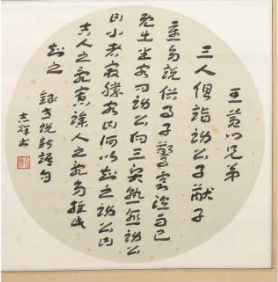 王黄门兄弟
三人俱詣謝公子猷子
重多説俗事子敬寒温而已
既出坐客问謝公向三賢孰愈謝公
曰小者最勝客曰何以知之謝公曰
吉人之辞寡躁人之辞多推此
知之
錄世説新語句